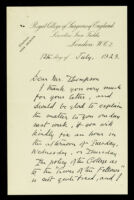 Royal College of Surgeons of England
Lincoln's Inn Fields
London W.C.2
July, 1923.
Dear Mr Thompson
I thank you very much
for your letter, and
should be glad to explain
the matter to you on
next week, if you will
kindly find an hour in
the afternoon of Tuesday,
Wednesday, or Thursday
The policy of the College as
to the Times of the Fellows
is not quite fixed, and I